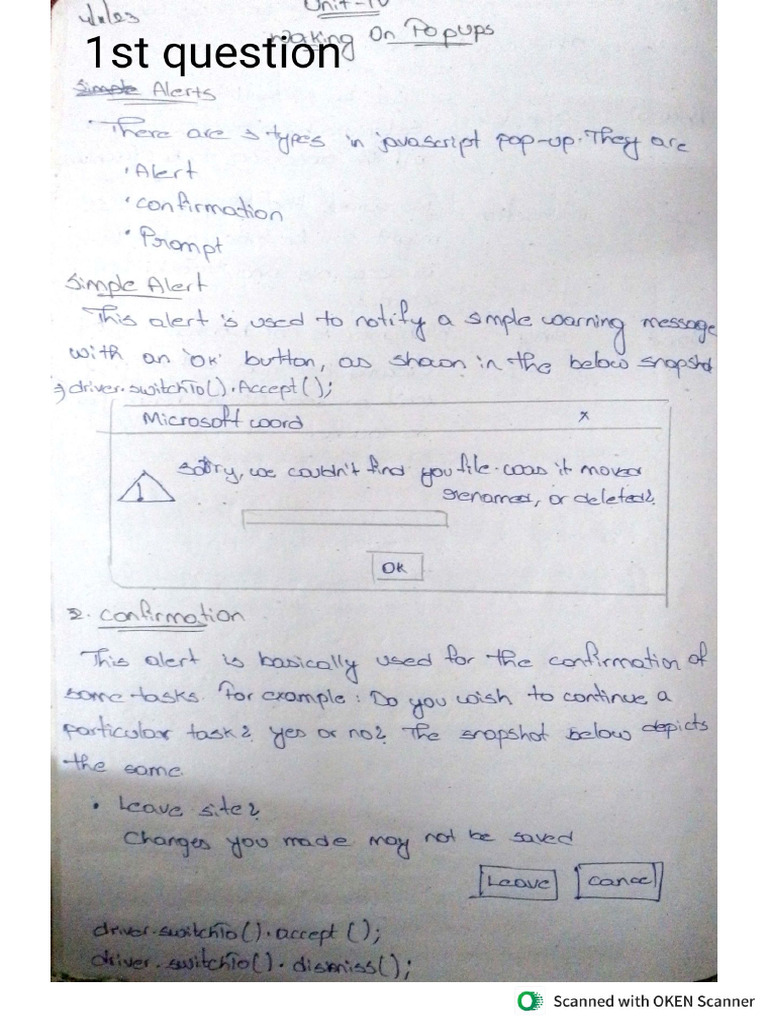 Unit-IV
Working On Popups
1st question
Simple Alerts
There are 3 types in javascript pop-up. They are
• Alert
• confirmation
• Prompt
Simple Alert
This alert is used to notify a smple warning message
with an 'OK' button, as shown in the below snapshot
driver.switchTo().Accept();
Microsoft word x
Sorry, we couldn't find you file. was it moved
renamed, or deleted?
!
OK
2. confirmation
This alert is basically used for the confirmation of
some tasks. For example: Do you wish to continue a
particular task? yes or no? The snapshot below depicts
the same.
• Leave site?
Changes you made may not be saved
Leave Cancel
driver.switchTo().accept();
driver.switchTo().dismiss();
Scanned with OKEN Scanner